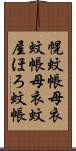 幌蚊帳母衣
蚊帳母衣蚊
屋ほろ蚊帳